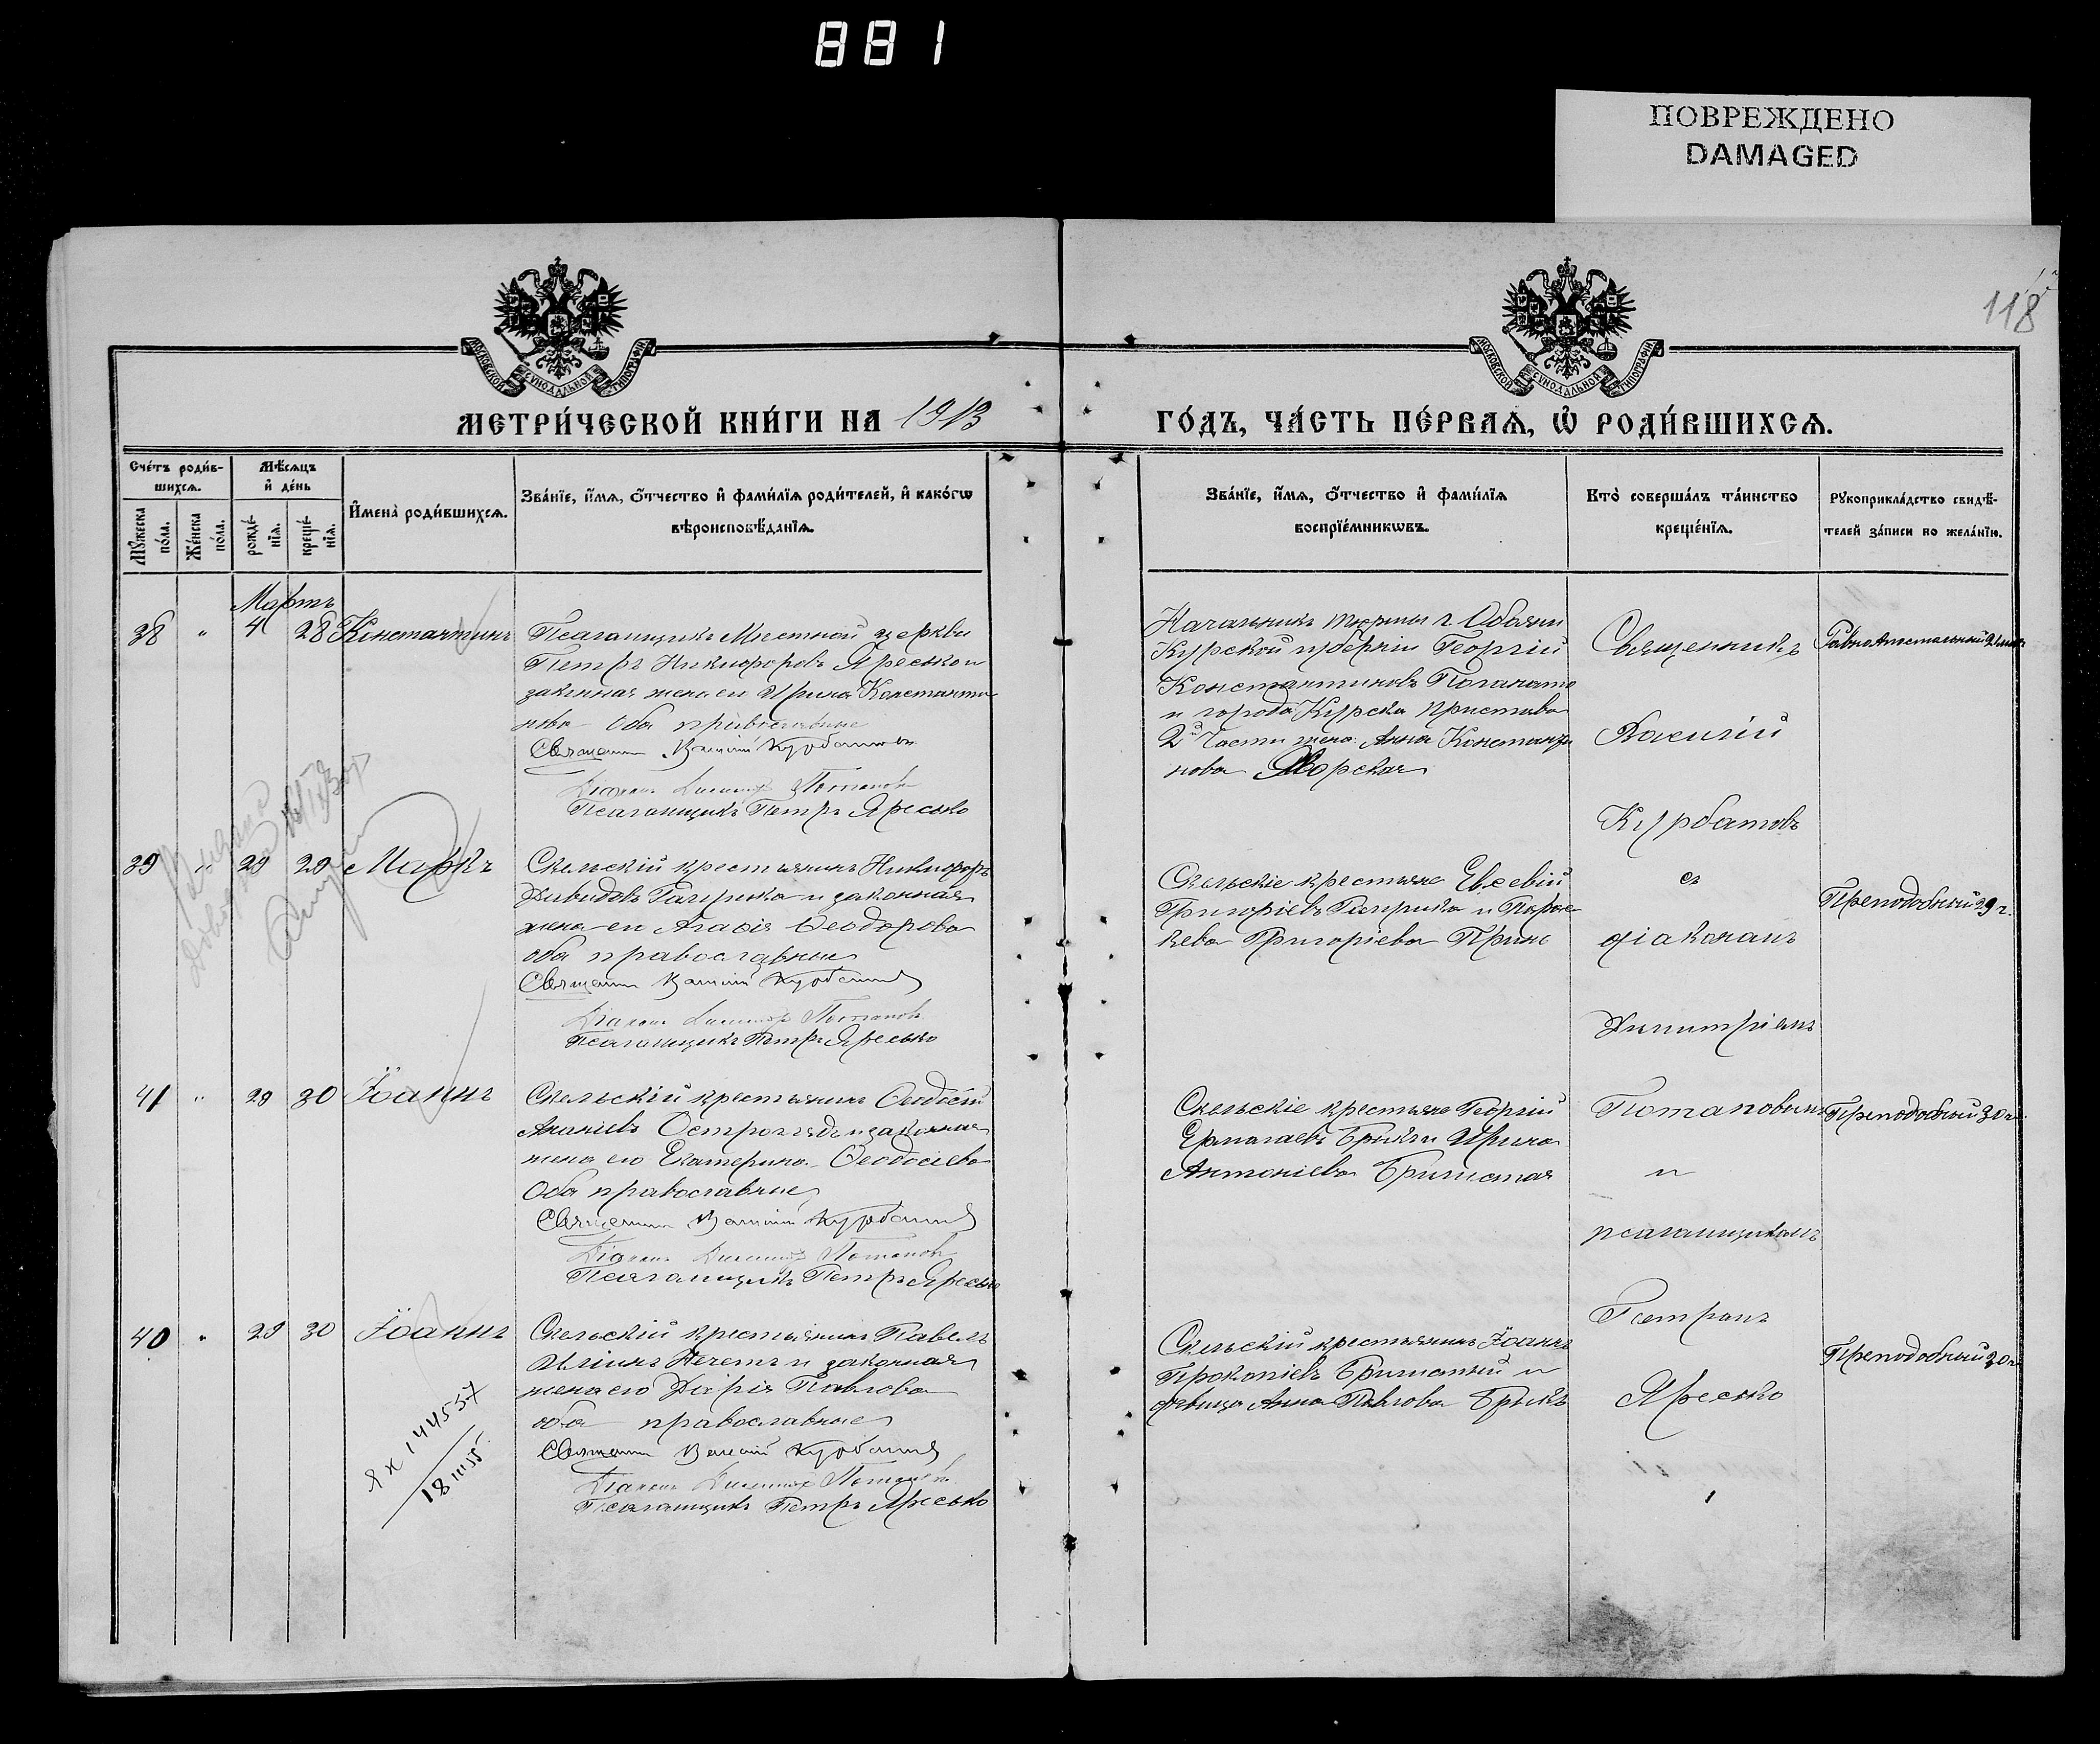 881
ПОВРЕЖДЕНО
DAMAGED
118
МОСКОВСКОЙ СѴНОДАЛЬНОЙ ТИПОГРАФІИ
МОСКОВСКОЙ СѴНОДАЛЬНОЙ ТИПОГРАФІИ
МЕТРИ́ЧЕСКОЙ КНИ́ГИ НА 1913
ГО́ДЪ, ЧА́СТЬ ПЕ́РВАѦ, Ѡ҆ РОДИ́ВШИХСѦ.
Сче́тъ роди́в-
шихсѧ.
Мѣ́сѧцъ
и҆ де́нь
Мꙋ́жеска по́ла.
Же́нска по́ла.
рожде́-
нїѧ.
креще́-
нїѧ.
И҆мена̀ роди́вшихсѧ.
Зва́нїе, и҆́мѧ, ѻ҆́тчество и҆ фами́лїѧ роди́телей, и҆ како́гѡ
вѣроисповѣ́данїѧ.
Зва́нїе, и҆́мѧ, ѻ҆́тчество и҆ фами́лїѧ
воспрїе́мникѡвъ.
Кто̀ соверша́лъ та́инство
креще́нїѧ.
Рꙋкоприкла́дство свидѣ́-
телей за́писи по жела́нїю.
Мартъ
38 " 4 28 Константинъ
Псаломщикъ Местной церкви
Петръ Никифоровъ Яресько и
законная жена его Ирина Константи-
нова Оба православные
Священн Василій Курбатовъ
Діаконъ Димитр Потаповъ
Псаломщикъ Петръ Яресько
Начальникъ тюрьмы г. Обояни
Курской губерніи Георгій
Константиновъ
и города Курска Пристава
2й Части жена Анна Констан
нова
Священникъ
Василій
Курбатовъ
съ
діаконамъ
Димитріемъ
Потаповымъ
и
псаломщикомъ
Петрамъ
Яресько
39 " 29 29 Маркъ
Скельскій крестьянинъ Никифоръ
Давидовъ и законная
жена его Агафія Ѳеодорова
оба православные
Священн Василій Курбатовъ
Діаконъ Димитр Потаповъ
Псаломщикъ Петръ Яресько
Скельскіе крестьяне Евсевій
Григоріевъ и Парас
кева Григоріева
Преподобный 29 ч.
41 " 29 30 Іоаннъ
Скельскій крестьянинъ Ѳеодосій
Ананіевъ и законная
жена его Екатерина Ѳеодосіева
Оба православные
Священн Василій Курбатовъ
Діаконъ Димитр Потаповъ
Псаломщикъ Петръ Яресько
Скельскіе крестьяне Георгій
Ермолаевъ Брикъ и Ирина
Антоніева
Преподобный 30 ч.
40 " 29 30 Іоаннъ
Скельскій крестьянинъ Павелъ
Ильинъ и законная
жена его Дарія Павлова
оба православные
Священн Василій Курбатовъ
Діаконъ Димитр Потаповъ
Псаломщикъ Петръ Яресько
Скельскій крестьянинъ Іоаннъ
Прокопіевъ и
дѣвица Анна Павлова Брикъ
Преподобный 30 ч.
144557